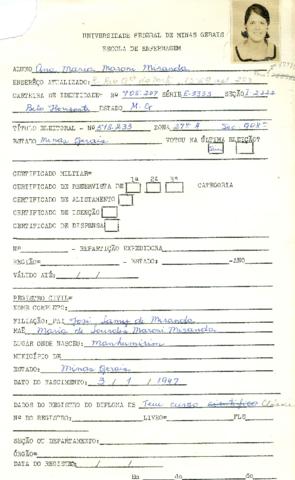 UNIVERSIDADE FEDERAL DE MINAS GERAIS
ESCOLA DE ENFERMAGEM
ALUNO Ana Maria Maroni Miranda
ENDERÊÇO ATUALIZADO:
CARTEIRA DE IDENTIDADE- Nº 705.207 SÉRIE E-3333 SEÇÃO I-2222
Belo Horizonte ESTADO M.G
TÍTULO ELEITORAL - Nº 515.233 ZONA 27ª A Sec 908ª
ESTADO Minas Gerais VOTOU NA ÚLTIMA ELEIÇÃO?
Sim
CERTIFICADO MILITAR=
1ª 2ª 3ª
CERTIFICADO DE RESERVISTA DE CATEGORIA
CERTIFICADO DE ALISTAMENTO
CERTIFICADO DE ISENÇÃO
CERTIFICADO DE DISPENSA
Nº - REPARTIÇÃO EXPEDIDORA
REGIÃO= - ESTADO: -ANO
VÁLIDO ATÉ: / /
REGISTRO CIVIL=
NOME COMPLETO:
FILIAÇÃO: PAI José Lamy de Miranda
MÃE Maria de Lourdes Maroni Miranda
LUGAR ONDE NASCEU: Manhumirim
MUNICÍPIO DE
ESTADO: Minas Gerais
DATO DO NASCIMENTO: 3 / 1 / 1947
DADOS DO REGISTRO DO DIPLOMA DE Tem curso científico Clássico
Nº DO REGISTRO: LIVRO= FLS
SEÇÃO OU DEPARTAMENTO:
ÓRGÃO=
DATA DO REGISTRO: / /
de de